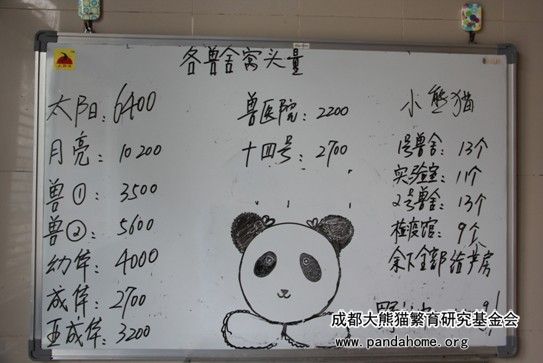 各兽舍窝头量
太阳：6400
月亮：10200
兽①：3500
兽②：5600
幼年：4000
成年：2700
亚成年：3200
兽医院：2200
十四号：2700
小熊猫
1号兽舍：13个
实验室：11个
2号兽舍：13个
检疫馆：9个
余下全部给产房
成都大熊猫繁育研究基金会
www.pandahome.org